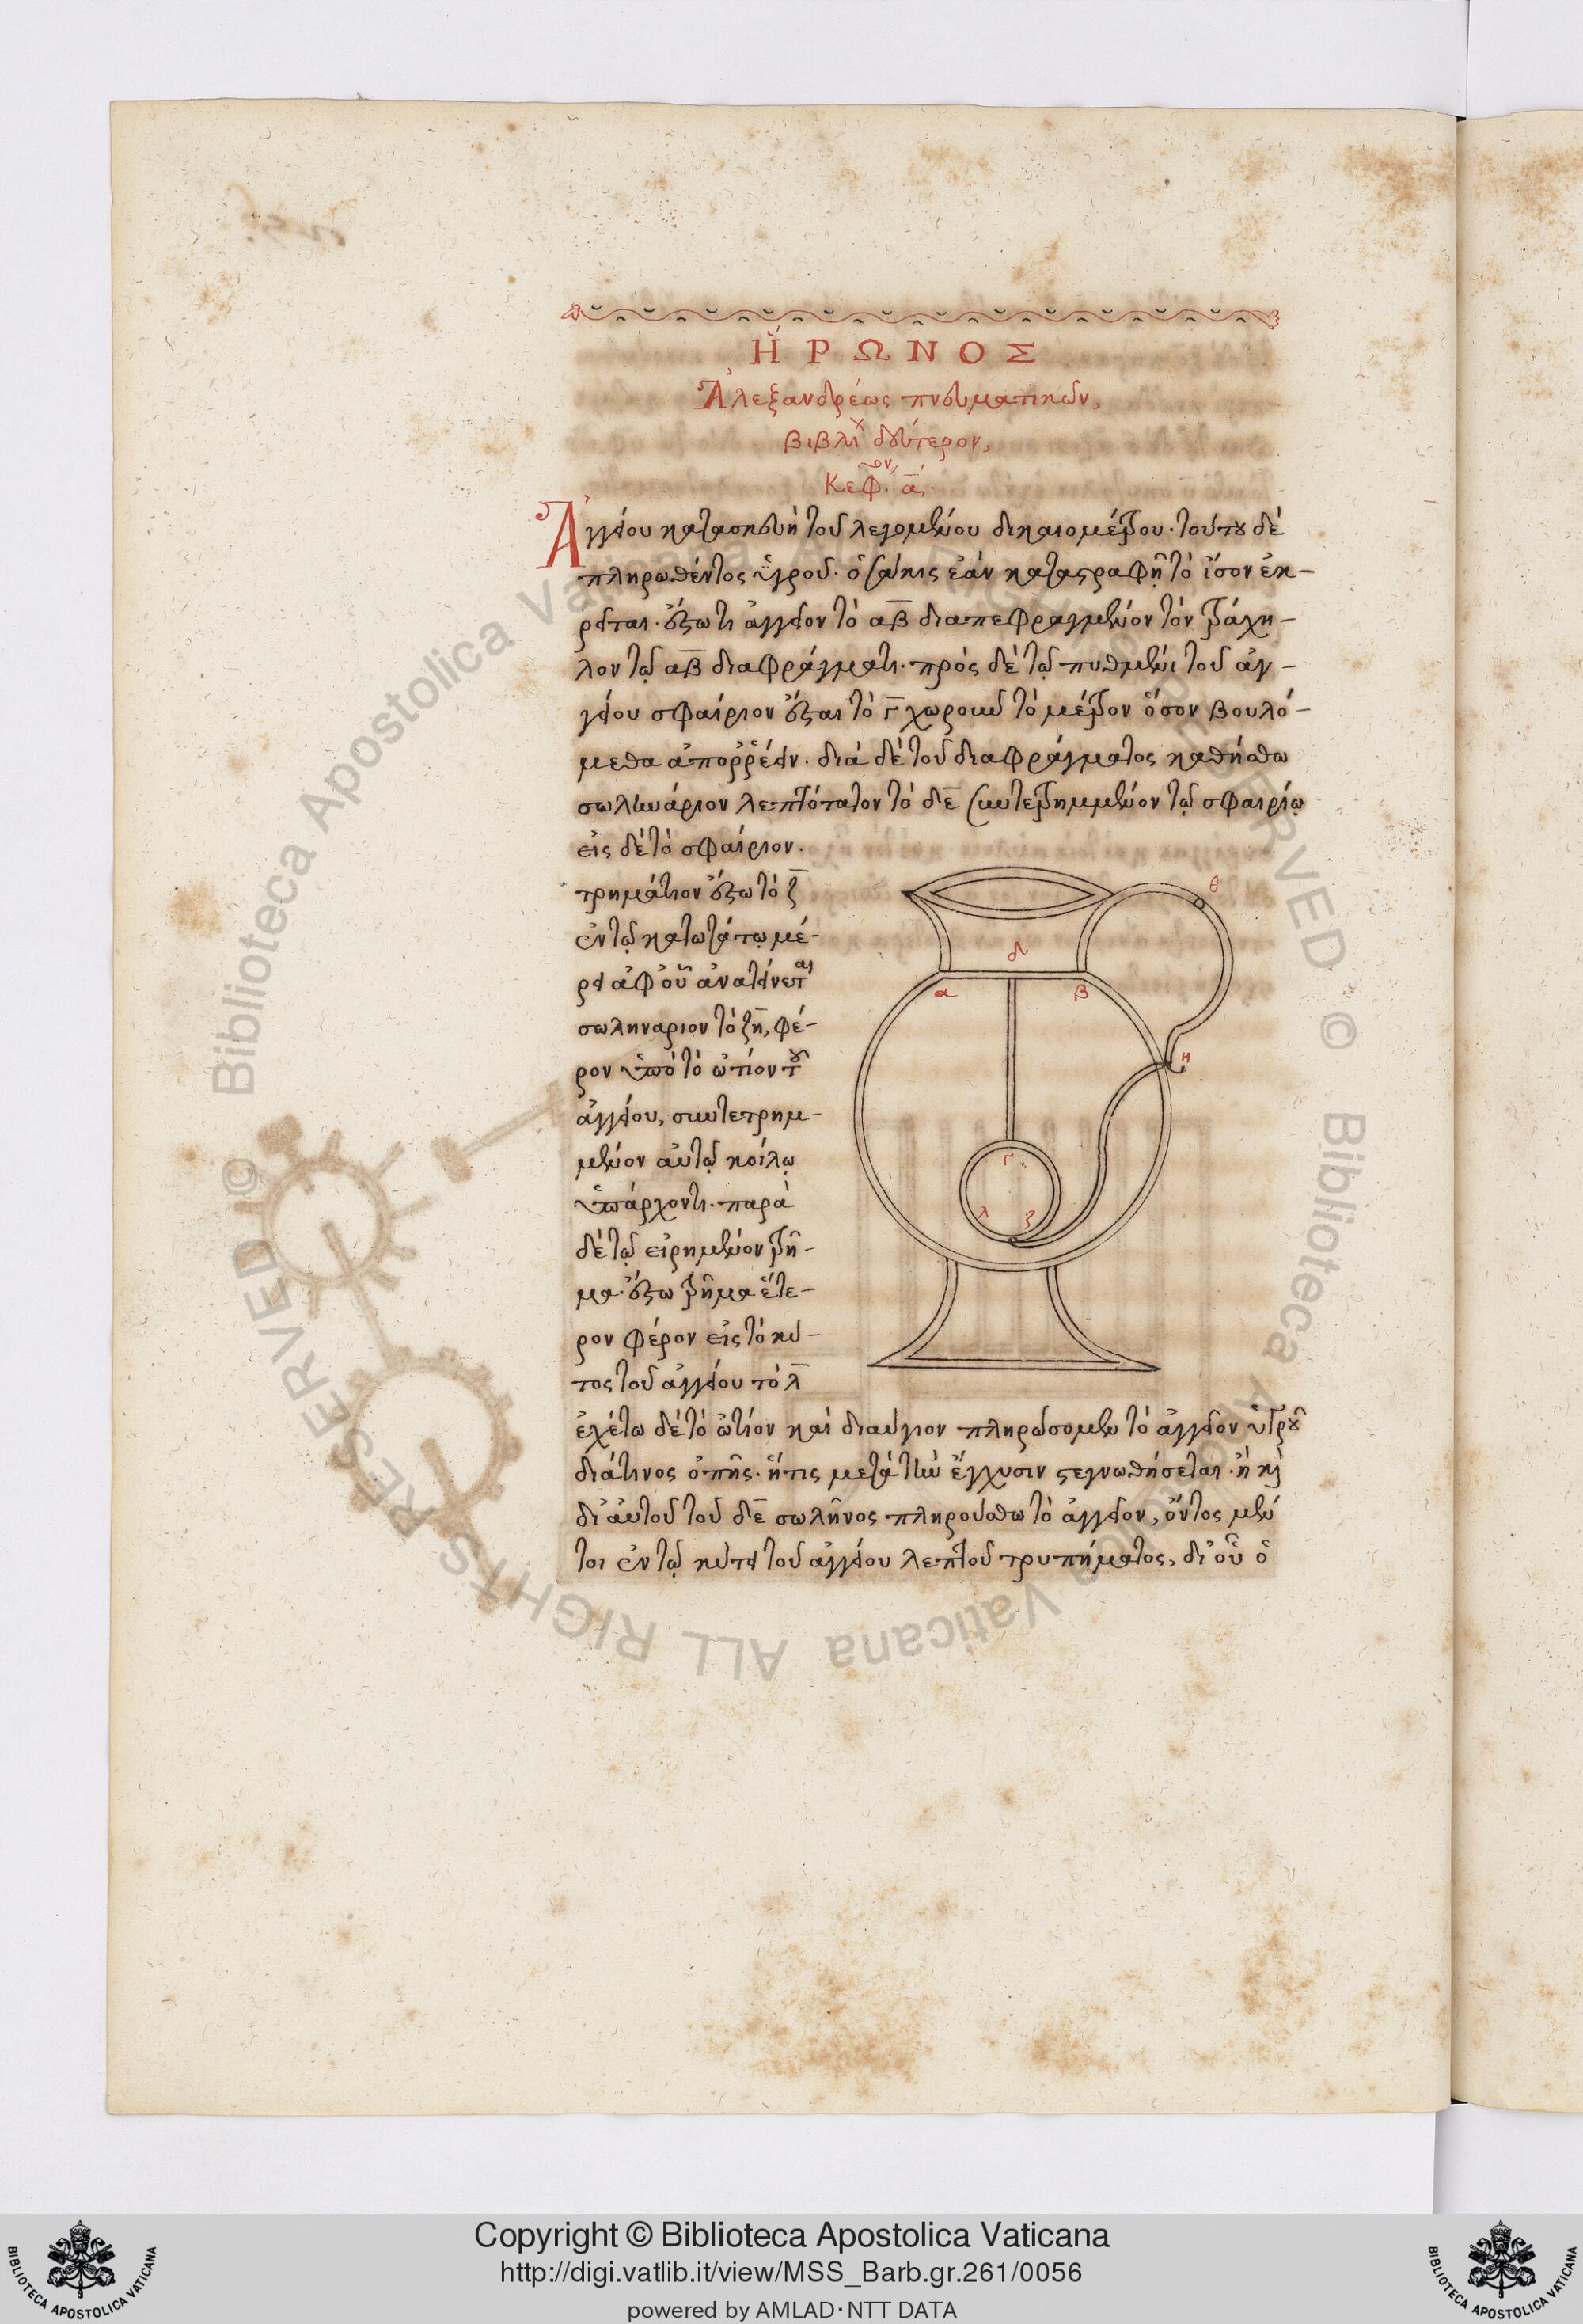 ἭΡΩΝΟΣ
Ἀλεξανδρέως πνευματικῶν,
βιβλι δεύτερον,
Κεφ. ον ά.
Ἀγγείου κατασκευὴ τοῦ λεγομένου δικαιομέτρου· τούτου δὲ
πληρωθέντος ὑγροῦ· ὁσάκις ἐὰν καταστραφῇ τὸ ἴσον ἐκ-
ρεῖται· ἔστω τι ἀγγεῖον τὸ αβ διαπεφραγμένον τὸν τράχη-
λον τῷ αβ διαφράγματι· πρὸς δὲ τῷ πυθμένι τοῦ ἀγ-
γείου σφαίριον ἔσται τὸ γ χωροῦν τὸ μέτρον ὅσον βουλό-
μεθα ἀπορρέειν· διὰ δὲ τοῦ διαφράγματος καθήσθω
σωληνάριον λεπτότατον τὸ δε συντετρημμένον τῷ σφαιρίῳ
εἰς δὲ τὸ σφαίριον·
τρημάτιον ἔστω τὸ ζ
ἐν τῷ κατωτάτῳ μέ-
ρει ἀφ᾽ οὗ ἀνατείνεται
σωληναριον τὸ ζη, φέ-
ρον ὑπὸ τὸ ὠτίον τοῦ
ἀγγείου, συντετρημ-
μένον αὐτῷ κοίλῳ
ὑπάρχοντι· παρὰ
δὲ τῷ εἰρημένον τρῆ-
μα· ἔστω τρῆμα ἕτε-
ρον φέρον εἰς τὸ κύ-
τος τοῦ ἀγγείου τὸ λ
ἐχέτω δὲ τὸ ὠτίον καὶ διαύγιον πληρώσομεν τὸ ἀγγεῖον ὑγροῦ
διά τινος ὀπῆς· ἥτις μετὰ τὴν ἔγχυσιν στεγνωθήσεται· ἢ καὶ
δι᾽ αὐτοῦ τοῦ δε σωλῆνος πληρούσθω τὸ ἀγγεῖον, ὄντος μέν
τοι ἐν τῷ κύτει τοῦ ἀγγείου λεπτοῦ τρυπήματος, δι᾽ οὗ ὁ
θ
δ
α β
η
γ
λ ζ
Biblioteca Apostolica Vaticana ALL RIGHTS RESERVED ©
Copyright © Biblioteca Apostolica Vaticana
http://digi.vatlib.it/view/MSS_Barb.gr.261/0056
powered by AMLAD·NTT DATA
BIBLIOTECA APOSTOLICA VATICANA
BIBLIOTECA APOSTOLICA VATICANA